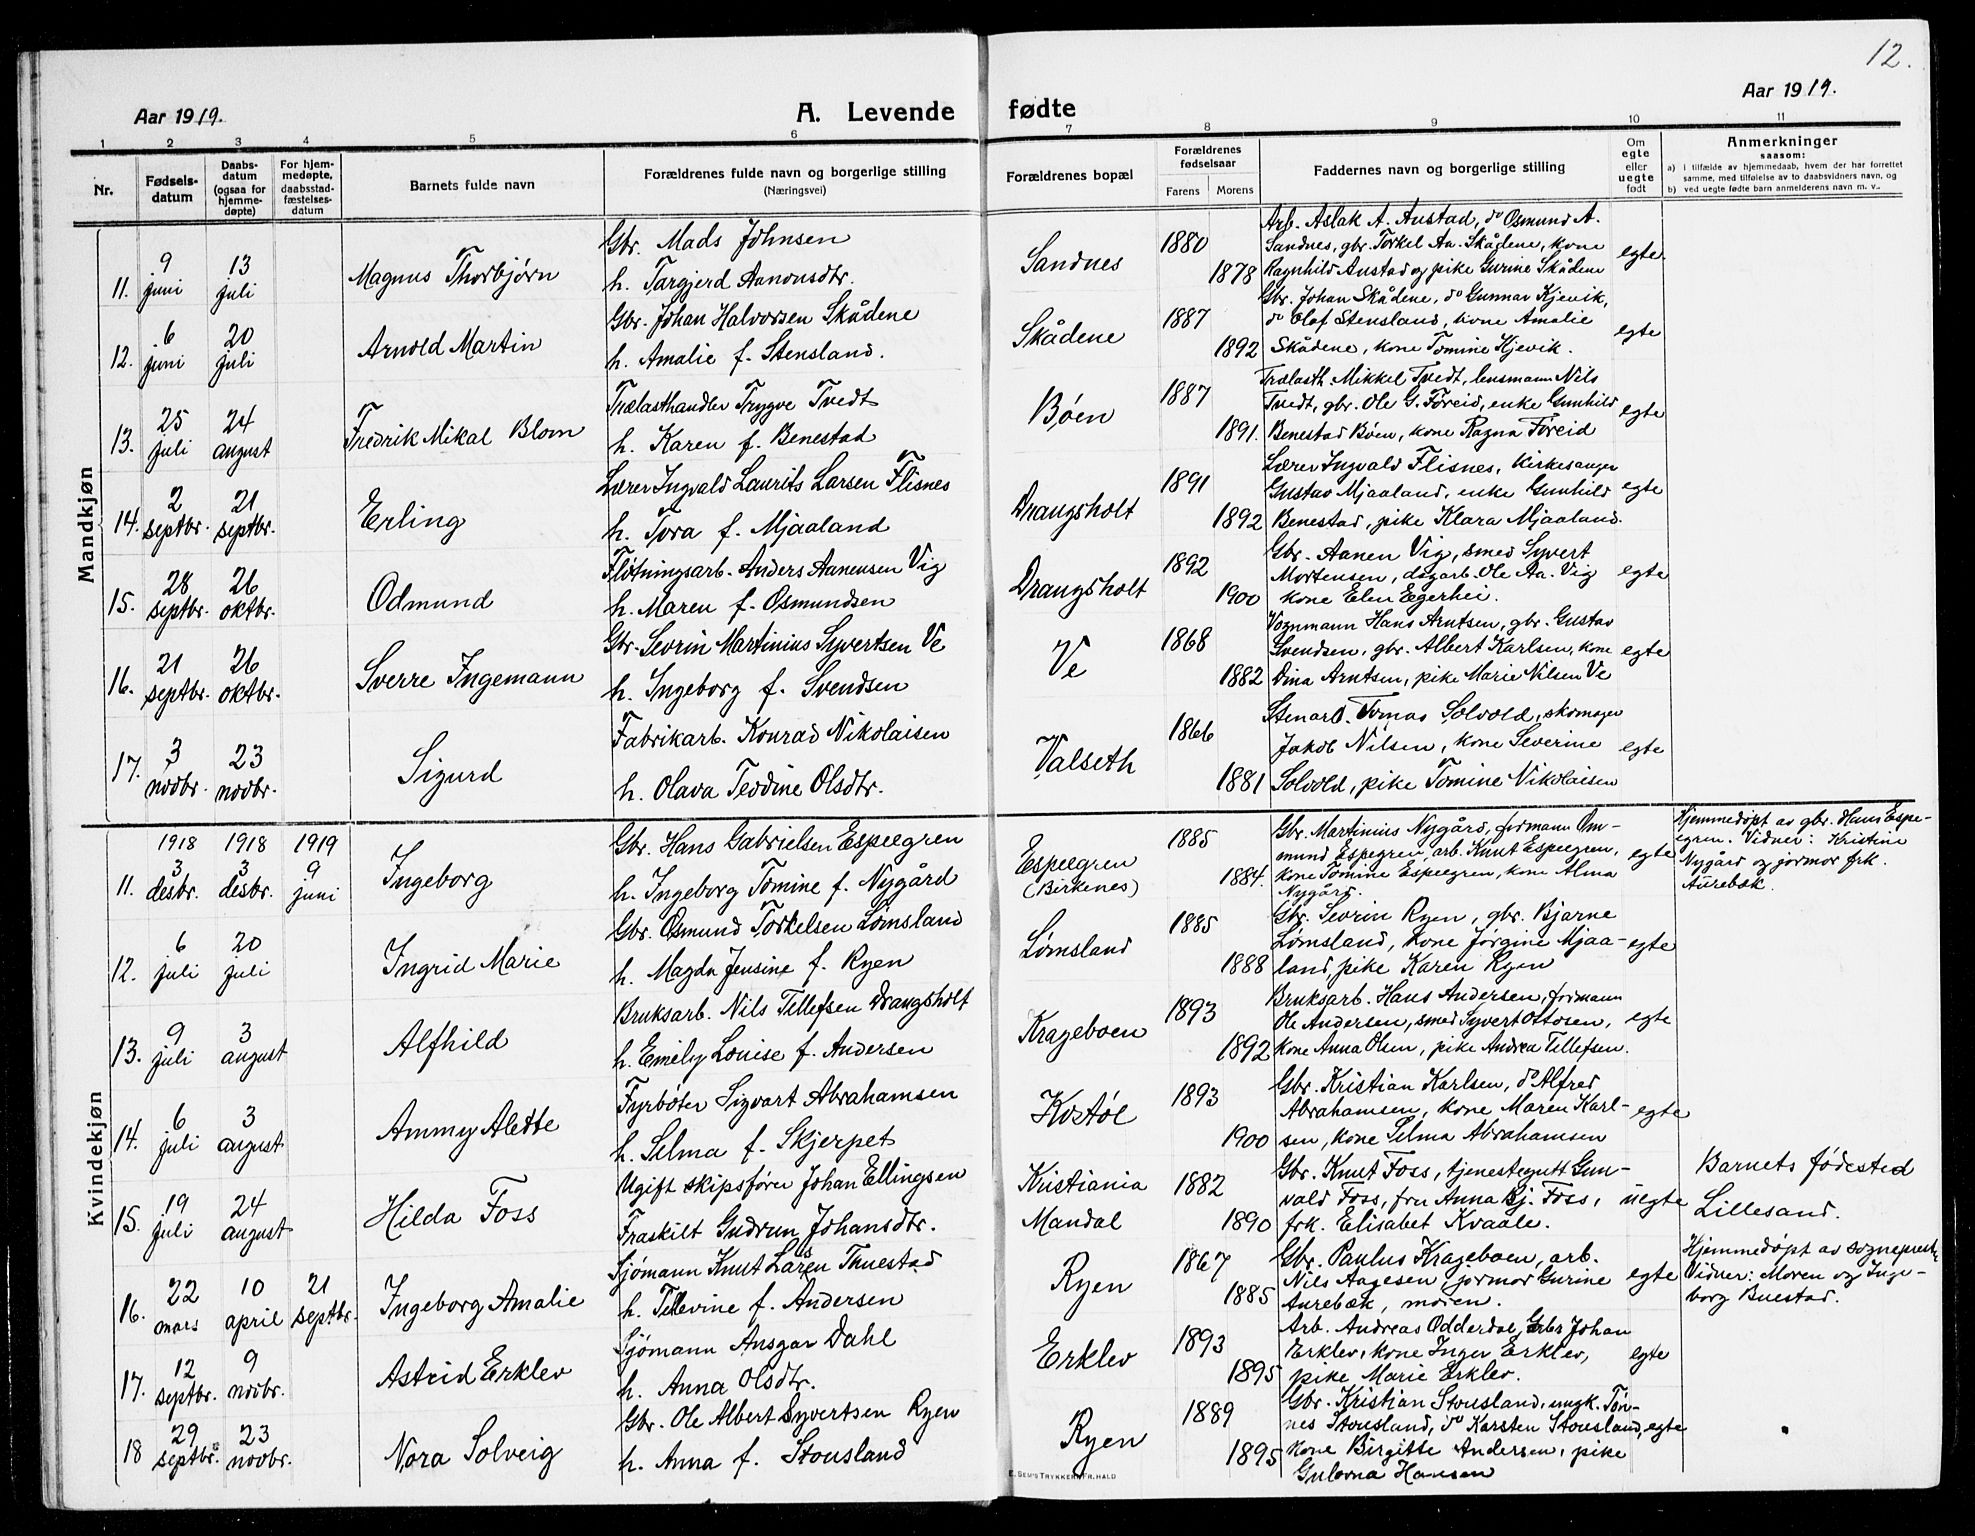 12.
Aar 1919. A. Levende fødte Aar 1919.
1 2 3 4 5 6 7 8 9 10 11
Nr. Fødsels-datum Daabs-datum (ogsaa for hjemme-døpte) For hjem-medøpte, daabsstad-fæstelses-datum Barnets fulde navn Forældrenes fulde navn og borgerlige stilling (Næringsvei) Forældrenes bopæl Forældrenes fødselsaar Farens Morens Faddernes navn og borgerlige stilling Om egte eller uegte født Anmerkninger saasom:
a) i tilfælde av hjemmedaab, hvem der har forrettet samme, med tilføielse av to daabsvidners navn, og
b) ved uegte fødte barn anmelderens navn m. v.
Mandkjøn
11. 9 juni 13 juli Magnus Thorbjørn Gbr. Mads Johnsen
h. Targjerd Aanonsdtr. Sandnes 1880 1878 Arb. Aslak A. Austad, do Osmund A.
Sandnes, gbr. Torkel Aa. Skådene, kone
Ragnhild Austad og pike Gurine Skådene egte
12. 6 juni 20 juli Arnold Martin Gbr. Johan Halvorsen Skådene
h. Amalie f. Stensland. Skådene 1887 1892 Gbr. Johan Skådene, do Gunnar Kjevik,
do Olaf Stensland, kone Amalie
Skådene, kone Tomine Kjevik. egte
13. 25 juli 24 august Fredrik Mikal Blom Trælasthandler Trygve Tvedt
h. Karen f. Benestad Bøen 1887 1891. Trælasth. Mikkel Tvedt, lensmann Nils
Tvedt, gbr. Ole G. Foreid, enke Gunhild
Benestad Bøen, kone Ragna Foreid egte
14. 2 septbr. 21 septbr. Erling Lærer Ingvald Laurits Larsen Flisnes
h. Tora f. Mjaaland Drangsholt 1891 1892 Lærer Ingvald Flisnes, kirkesanger
Gustav Mjaaland, enke Gunhild
Benestad, pike Klara Mjaaland. egte
15. 28 septbr. 26 oktbr. Odmund Fløtningsarb. Anders Aanensen Vig
h. Maren f. Osmundsen Drangsholt 1892 1900 Gbr. Aanen Vig, smed Syvert
Mortensen, dagarb. Ole Aa. Vig
kone Elen Egerhei. egte
16. 21 septbr. 26 oktbr. Sverre Ingemann Gbr. Sevrin Martinius Syvertsen Ve
h. Ingeborg f. Svendsen Ve 1868 1882 Vognmann Hans Arntsen, gbr. Gustav
Svendsen, gbr. Albert Karlsen, kone
Dina Arntsen, pike Marie Nilsen Ve egte
17. 3 novbr. 23 novbr. Sigurd Fabrikarb. Konrad Nikolaisen
h. Olava Tevdine Olsdtr. Valseth 1866 1881 Stenarb. Tomas Solvold, skomager
Jakob Nilsen, kone Severine
Solvold, pike Tomine Nikolaisen egte
Kvindekjøn
11. 1918 3 desbr. 1918 3 desbr. 1919 9 juni Ingeborg Gbr. Hans Gabrielsen Espeegren
h. Ingeborg Tomine f. Nygård Espeegren (Birkenes) 1885 1884. Gbr. Martinius Nygård, formann Om-
mund Espegren, arb. Knut Espeegren,
kone Tomine Espeegren, kone Alma
Nygård. egte Hjemmedøpt av gbr. Hans Espe-
egren. Vidner: Kristine
Nygård og jormor frk.
Aurebæk.
12. 6 juli 20 juli Ingrid Marie Gbr. Osmund Torkelsen Lømsland
h. Magda Jensine f. Ryen Lømsland 1885 1888 Gbr. Sevrin Ryen, gbr. Bjarne
Lømsland, kone Jørgine Mjaa-
land, pike Karen Ryen egte
13. 9 juli 3 august Alfhild Bruksarb. Nils Tellefsen Drangsholt
h. Emely Louise f. Andersen Krageboen 1893 1892 Bruksarb. Hans Andersen, formann
Ole Andersen, smed Syvert Ottosen,
kone Anna Olsen, pike Andrea Tellefsen. egte
14. 6 juli 3 august Ammy Alette Fyrbøter Sigvart Abrahamsen
h. Selma f. Skjerpet Kostøl 1893 1900 Gbr. Kristian Karlsen, do Alfred
Abrahamsen, kone Maren Karl-
sen, kone Selma Abrahamsen egte
15. 19 juli 24 august Hilda Foss Ugift skipsfører Johan Ellingsen
Fraskilt Gudrun Johansdtr. Kristiania
Mandal 1882 1890 Gbr. Knut Foss, tjenestegutt Gun-
vald Foss, fru Anna Bj. Foss,
frk. Elisabet Kvaale. uegte Barnets fødested
Lillesand.
16. 22 mars 10 april 21 septbr. Ingeborg Amalie Sjømann Knut Låren Tnuestad
h. Tellevine f. Andersen Ryen 1867 1885 Gbr. Paulus Krageboen, arb.
Nils Aagesen, jormor Gurine
Aurebæk, moren. egte Hjemmedøpt av sogneprest.
Vidner: Moren og Inge-
borg Buestad.
17. 12 septbr. 9 novbr. Astrid Erklev Sjømann Ansgar Dahl
h. Anna Olsdtr. Erklev 1893 1895 Arb. Andreas Odderdal, Gbr Johan
Erklev, kone Inger Erklev,
pike Marie Erklev. egte
18 29 septbr. 23 novbr. Nora Solveig Gbr. Ole Albert Syvertsen Ryen
h. Anna f. Stousland Ryen 1889 1895 Gbr. Kristian Stousland, ungk. Tøn-
nes Stousland, do Karsten Stousland,
kone Birgitte Andersen, pike
Gulovna Hansen egte
E. SEM'S TRYKKERI, FR.HALD